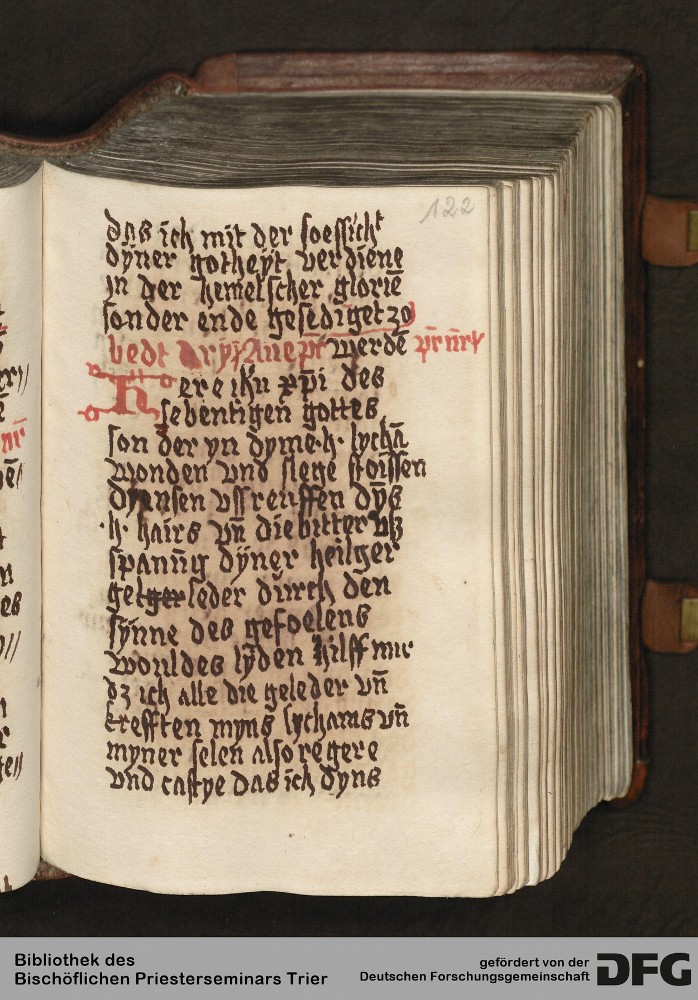 122
das ich mit der soessicht
dyner gotheyt verdiene
in der hemelscher glorie
sonder ende gesediget zo
bedt dry Aue pr werdē pr nr
Here ihu xpi des
lebentigen gottes
son der yn dyme .h. lychā
wonden vnd slege stoissen
vssreuffen dÿs
.h. hairs vn̄ die bitter vß
spanūg dÿner heilger
gelger leder durch den
synne des gefoelens
wouldes lÿden hilff mir
dz ich alle die geleder vn̄
krefften myns lychams vn̄
myner selen also regere
vnd castye das ich dyns
Bibliothek des
Bischöflichen Priesterseminars Trier
gefördert von der
Deutschen Forschungsgemeinschaft
DFG